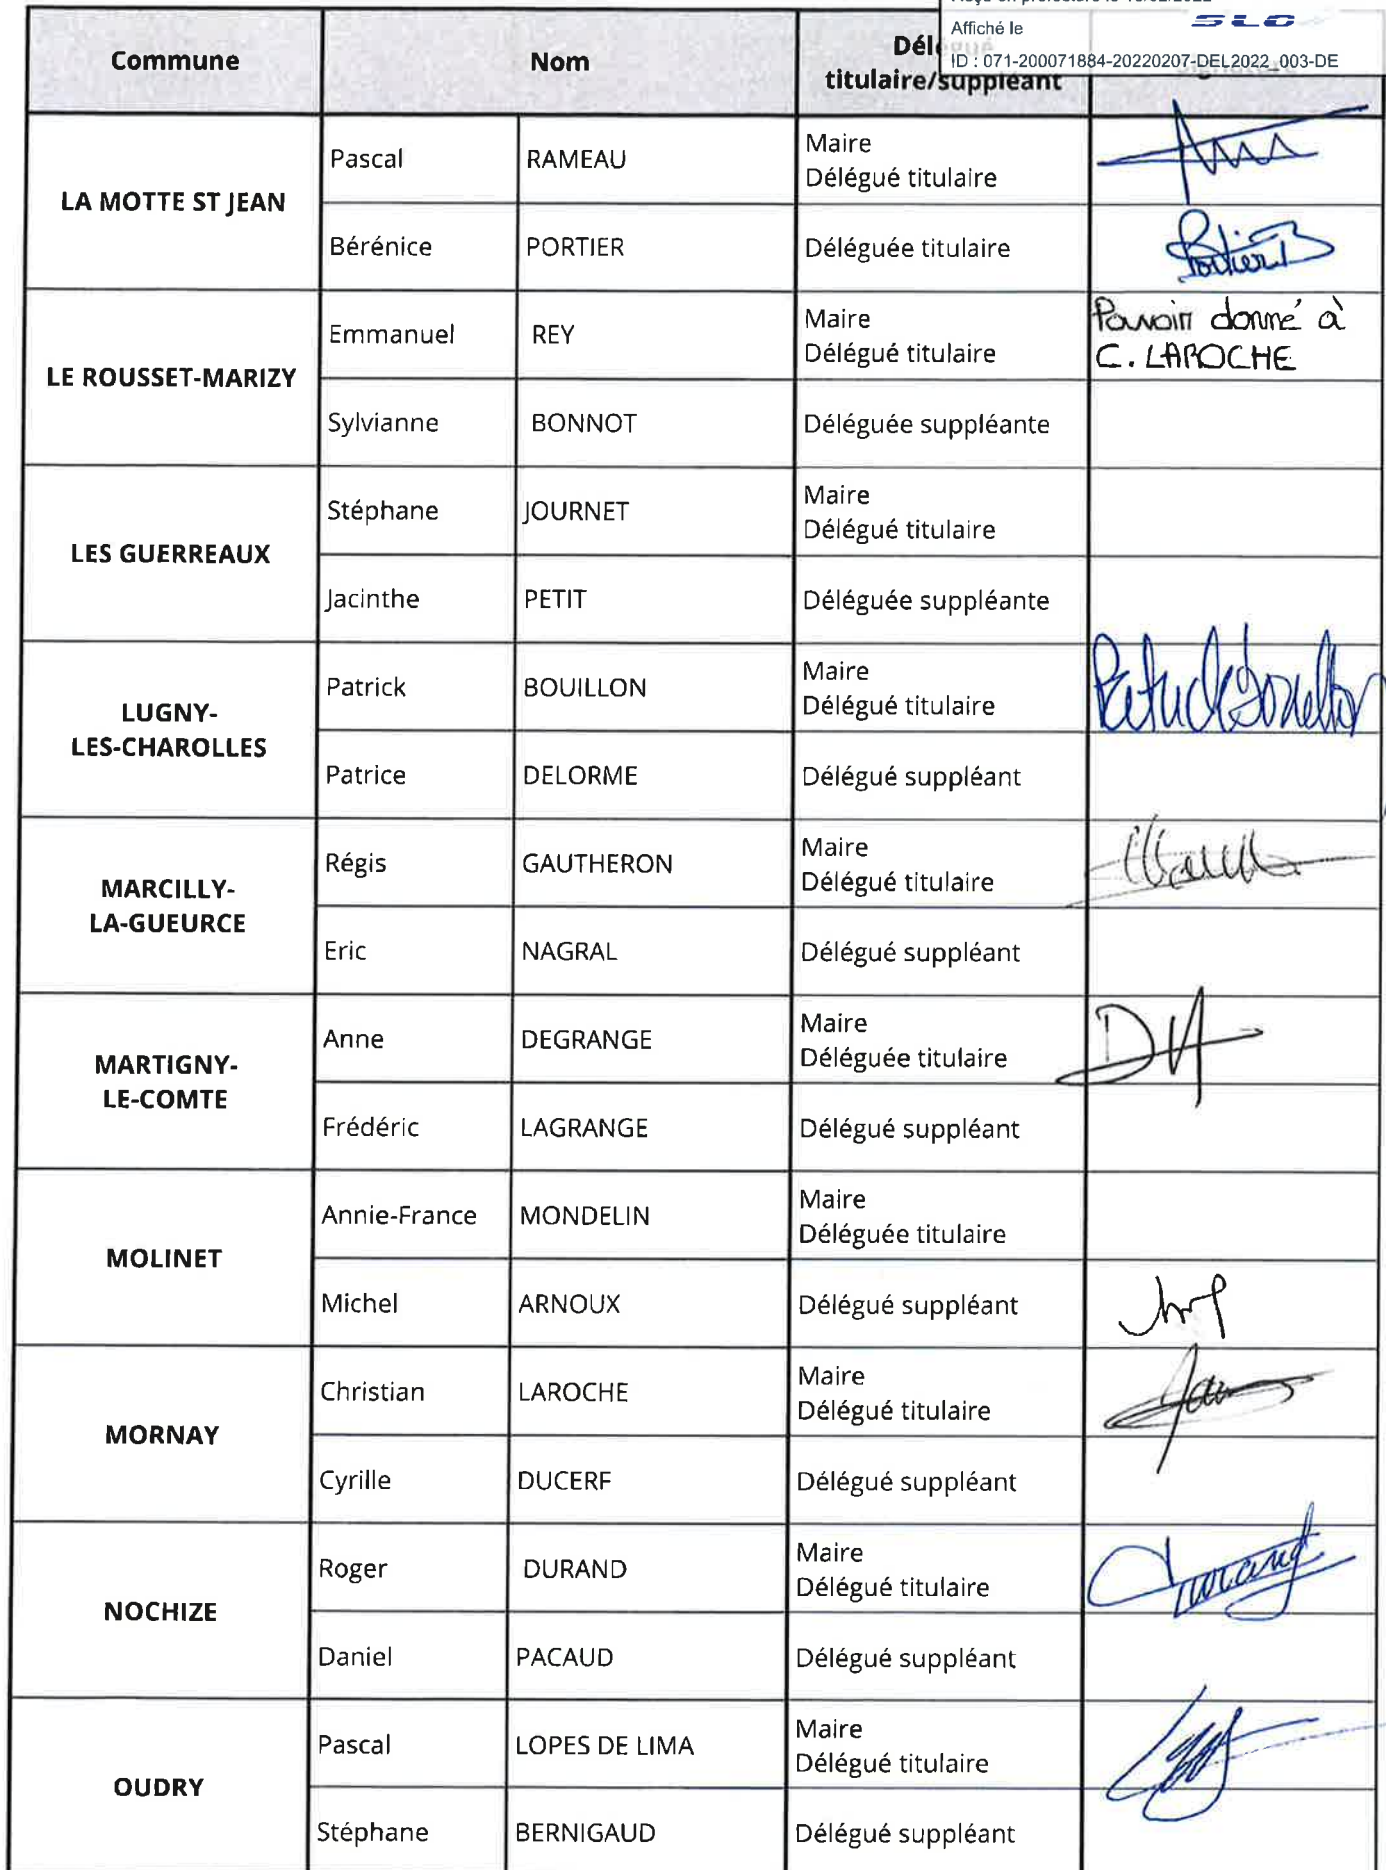 Affiché le
SLO
ID : 071-200071884-20220207-DEL2022_003-DE
Commune Nom
titulaire/suppléant
LA MOTTE ST JEAN
Pascal RAMEAU Maire
Délégué titulaire
Bérénice PORTIER Déléguée titulaire
Portier B
LE ROUSSET-MARIZY
Emmanuel REY Maire
Délégué titulaire
Pouvoir donné à
C. LAROCHE
Sylvianne BONNOT Déléguée suppléante
LES GUERREAUX
Stéphane JOURNET Maire
Délégué titulaire
Jacinthe PETIT Déléguée suppléante
LUGNY-
LES-CHAROLLES
Patrick BOUILLON Maire
Délégué titulaire
Patrick Bouillon
Patrice DELORME Délégué suppléant
MARCILLY-
LA-GUEURCE
Régis GAUTHERON Maire
Délégué titulaire
Eric NAGRAL Délégué suppléant
MARTIGNY-
LE-COMTE
Anne DEGRANGE Maire
Déléguée titulaire
DA
Frédéric LAGRANGE Délégué suppléant
MOLINET
Annie-France MONDELIN Maire
Déléguée titulaire
Michel ARNOUX Délégué suppléant
MORNAY
Christian LAROCHE Maire
Délégué titulaire
Cyrille DUCERF Délégué suppléant
NOCHIZE
Roger DURAND Maire
Délégué titulaire
Durand
Daniel PACAUD Délégué suppléant
OUDRY
Pascal LOPES DE LIMA Maire
Délégué titulaire
Stéphane BERNIGAUD Délégué suppléant